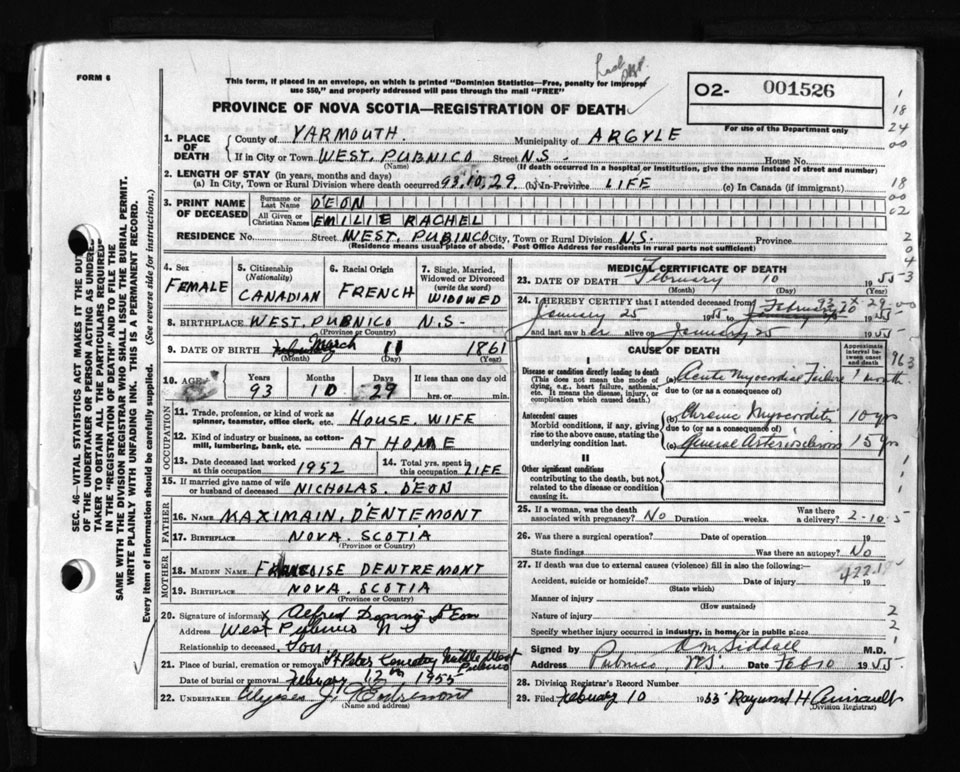 FORM 6
This form, if placed in an envelope, on which is printed "Dominion Statistics—Free, penalty for improper
use $50," and properly addressed will pass through the mail "FREE"
PROVINCE OF NOVA SCOTIA—REGISTRATION OF DEATH
O2- 001526
For use of the Department only
1. PLACE OF DEATH County of YARMOUTH. Municipality of ARGYLE
If in City or Town WEST. PUBNICO Street N.S. House No.
(Name) (If death occurred in a hospital or institution, give the name instead of street and number)
2. LENGTH OF STAY (in years, months and days)
(a) In City, Town or Rural Division where death occurred 93.10.29. (b) In Province LIFE (c) In Canada (if immigrant)
3. PRINT NAME OF DECEASED
Surname or Last Name DEON
All Given or Christian Names EMILIE RACHEL
RESIDENCE No. Street WEST. PUBINCO City, Town or Rural Division N.S. Province
(Residence means usual place of abode. Post Office Address for residents in rural parts not sufficient)
4. Sex FEMALE
5. Citizenship (Nationality) CANADIAN
6. Racial Origin FRENCH
7. Single, Married, Widowed or Divorced (write the word) WIDOWED
8. BIRTHPLACE WEST. PUBNICO N.S-
(Province or Country)
9. DATE OF BIRTH March 11 1861
(Month) (Day) (Year)
10. AGE Years 93 Months 10 Days 29 If less than one day old
hrs. or min.
OCCUPATION
11. Trade, profession, or kind of work as spinner, teamster, office clerk, etc. HOUSE. WIFE
12. Kind of industry or business, as cotton-mill, lumbering, bank, etc. AT HOME
13. Date deceased last worked at this occupation 1952
14. Total yrs. spent in this occupation LIFE
15. If married give name of wife or husband of deceased NICHOLAS. D'EON
FATHER
16. NAME MAXIMAIN. D'ENTEMONT
17. BIRTHPLACE NOVA. SCOTIA
(Province or Country)
MOTHER
18. MAIDEN NAME DENTREMONT
19. BIRTHPLACE NOVA. SCOTIA
(Province or Country)
20. Signature of informant X Alfred D'Eon
Address West Pubnico N S
Relationship to deceased Son
21. Place of burial, cremation or removal St Peter Cemetery Middle West Pubnico
Date of burial or removal February 12th 1955
22. UNDERTAKER Ulysses J. D'Entremont
(Name and address)
MEDICAL CERTIFICATE OF DEATH
23. DATE OF DEATH February 10 1955
(Month) (Day) (Year)
24. I HEREBY CERTIFY that I attended deceased from
January 25 1955 to February 10 1955
and last saw her alive on January 25 1955
CAUSE OF DEATH
Approximate interval between onset and death
I
Disease or condition directly leading to death (a) Acute Myocardial Failure 1 month
(This does not mean the mode of dying, e.g., heart failure, asthenia, etc. It means the disease, injury, or complication which caused death.)
due to (or as a consequence of)
Antecedent causes (b) Chronic Myocarditis 10 yrs
Morbid conditions, if any, giving rise to the above cause, stating the underlying condition last.
due to (or as a consequence of)
(c) General Arteriosclerosis 15 yrs
II
Other significant conditions contributing to the death, but not related to the disease or condition causing it.
25. If a woman, was the death associated with pregnancy? No Duration weeks. Was there a delivery? 2-10-5
26. Was there a surgical operation? Date of operation 19
State findings Was there an autopsy? No
27. If death was due to external causes (violence) fill in also the following:—
Accident, suicide or homicide? Date of injury 19
(State which)
422.1
Manner of injury
(How sustained)
Nature of injury
Specify whether injury occurred in industry, in home, or in public place
Signed by Siddall M.D.
Address Pubnico, N.S. Date Feb 10 1955
28. Division Registrar's Record Number
29. Filed February 10 1955 Raymond H Amirault
(Division Registrar)
SEC. 46—VITAL STATISTICS ACT MAKES IT THE DUTY
OF THE UNDERTAKER OR PERSON ACTING AS UNDER-
TAKER TO OBTAIN ALL THE PARTICULARS REQUIRED
IN THE "REGISTRATION OF DEATH" AND TO FILE THE
SAME WITH THE DIVISION REGISTRAR WHO SHALL ISSUE THE BURIAL PERMIT.
WRITE PLAINLY WITH UNFADING INK. THIS IS A PERMANENT RECORD.
Every item of information should be carefully supplied. (See reverse side for instructions.)